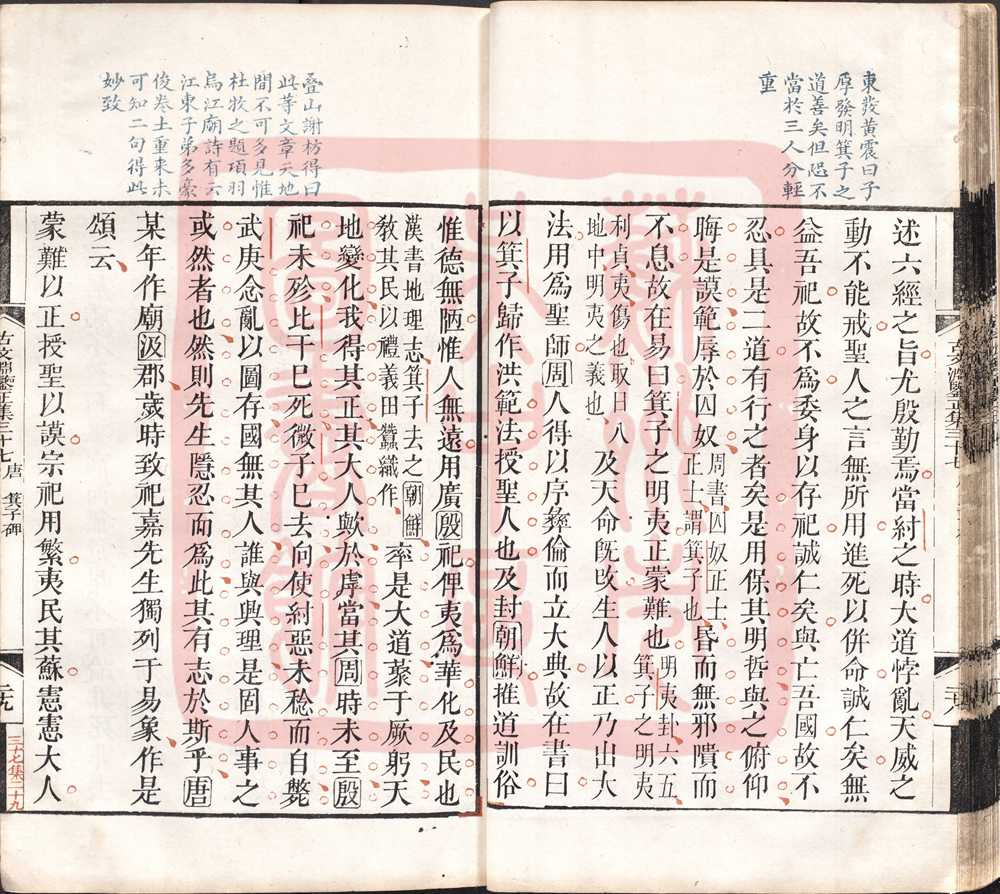 東發黃震曰子
厚發明箕子之
道善矣但恐不
當於三人分輕
重
述六經之旨尤殷勤焉當紂之時大道悖亂天威之
動不能戒聖人之言無所用進死以併命誠仁矣無
益吾祀故不爲委身以存祀誠仁矣與亡吾國故不
忍具是二道有行之者矣是用保其明哲與之俯仰
晦是謨範辱於囚奴周書囚奴正士正士謂箕子也昏而無邪隤而
不息故在易曰箕子之明夷正蒙難也明夷卦六五箕子之明夷
利貞夷傷也取日入地中明夷之義也及天命旣改生人以正乃出大
法用爲聖師周人得以序彝倫而立大典故在書曰
以箕子歸作洪範法授聖人也及封朝鮮推道訓俗
疊山謝枋得曰
此等文章天地
間不可多見惟
杜牧之題項羽
烏江廟詩有云
江東子弟多豪
俊卷土重來未
可知二句得此
妙致
惟德無陋惟人無遠用廣殷祀俾夷爲華化及民也
漢書地理志箕子去之朝鮮敎其民以禮義田蠶織作率是大道藂于厥躬天
地變化我得其正其大人歟於虖當其周時未至殷
祀未殄比干已死微子已去向使紂惡未稔而自斃
武庚念亂以圖存國無其人誰與興理是固人事之
或然者也然則先生隱忍而爲此其有志於斯乎唐
某年作廟汲郡歲時致祀嘉先生獨列于易象作是
頌云
蒙難以正授聖以謨宗祀用繁夷民其蘇憲憲大人
古文淵鑒正集三十七 唐 箕子碑
二十九
三七集二十九